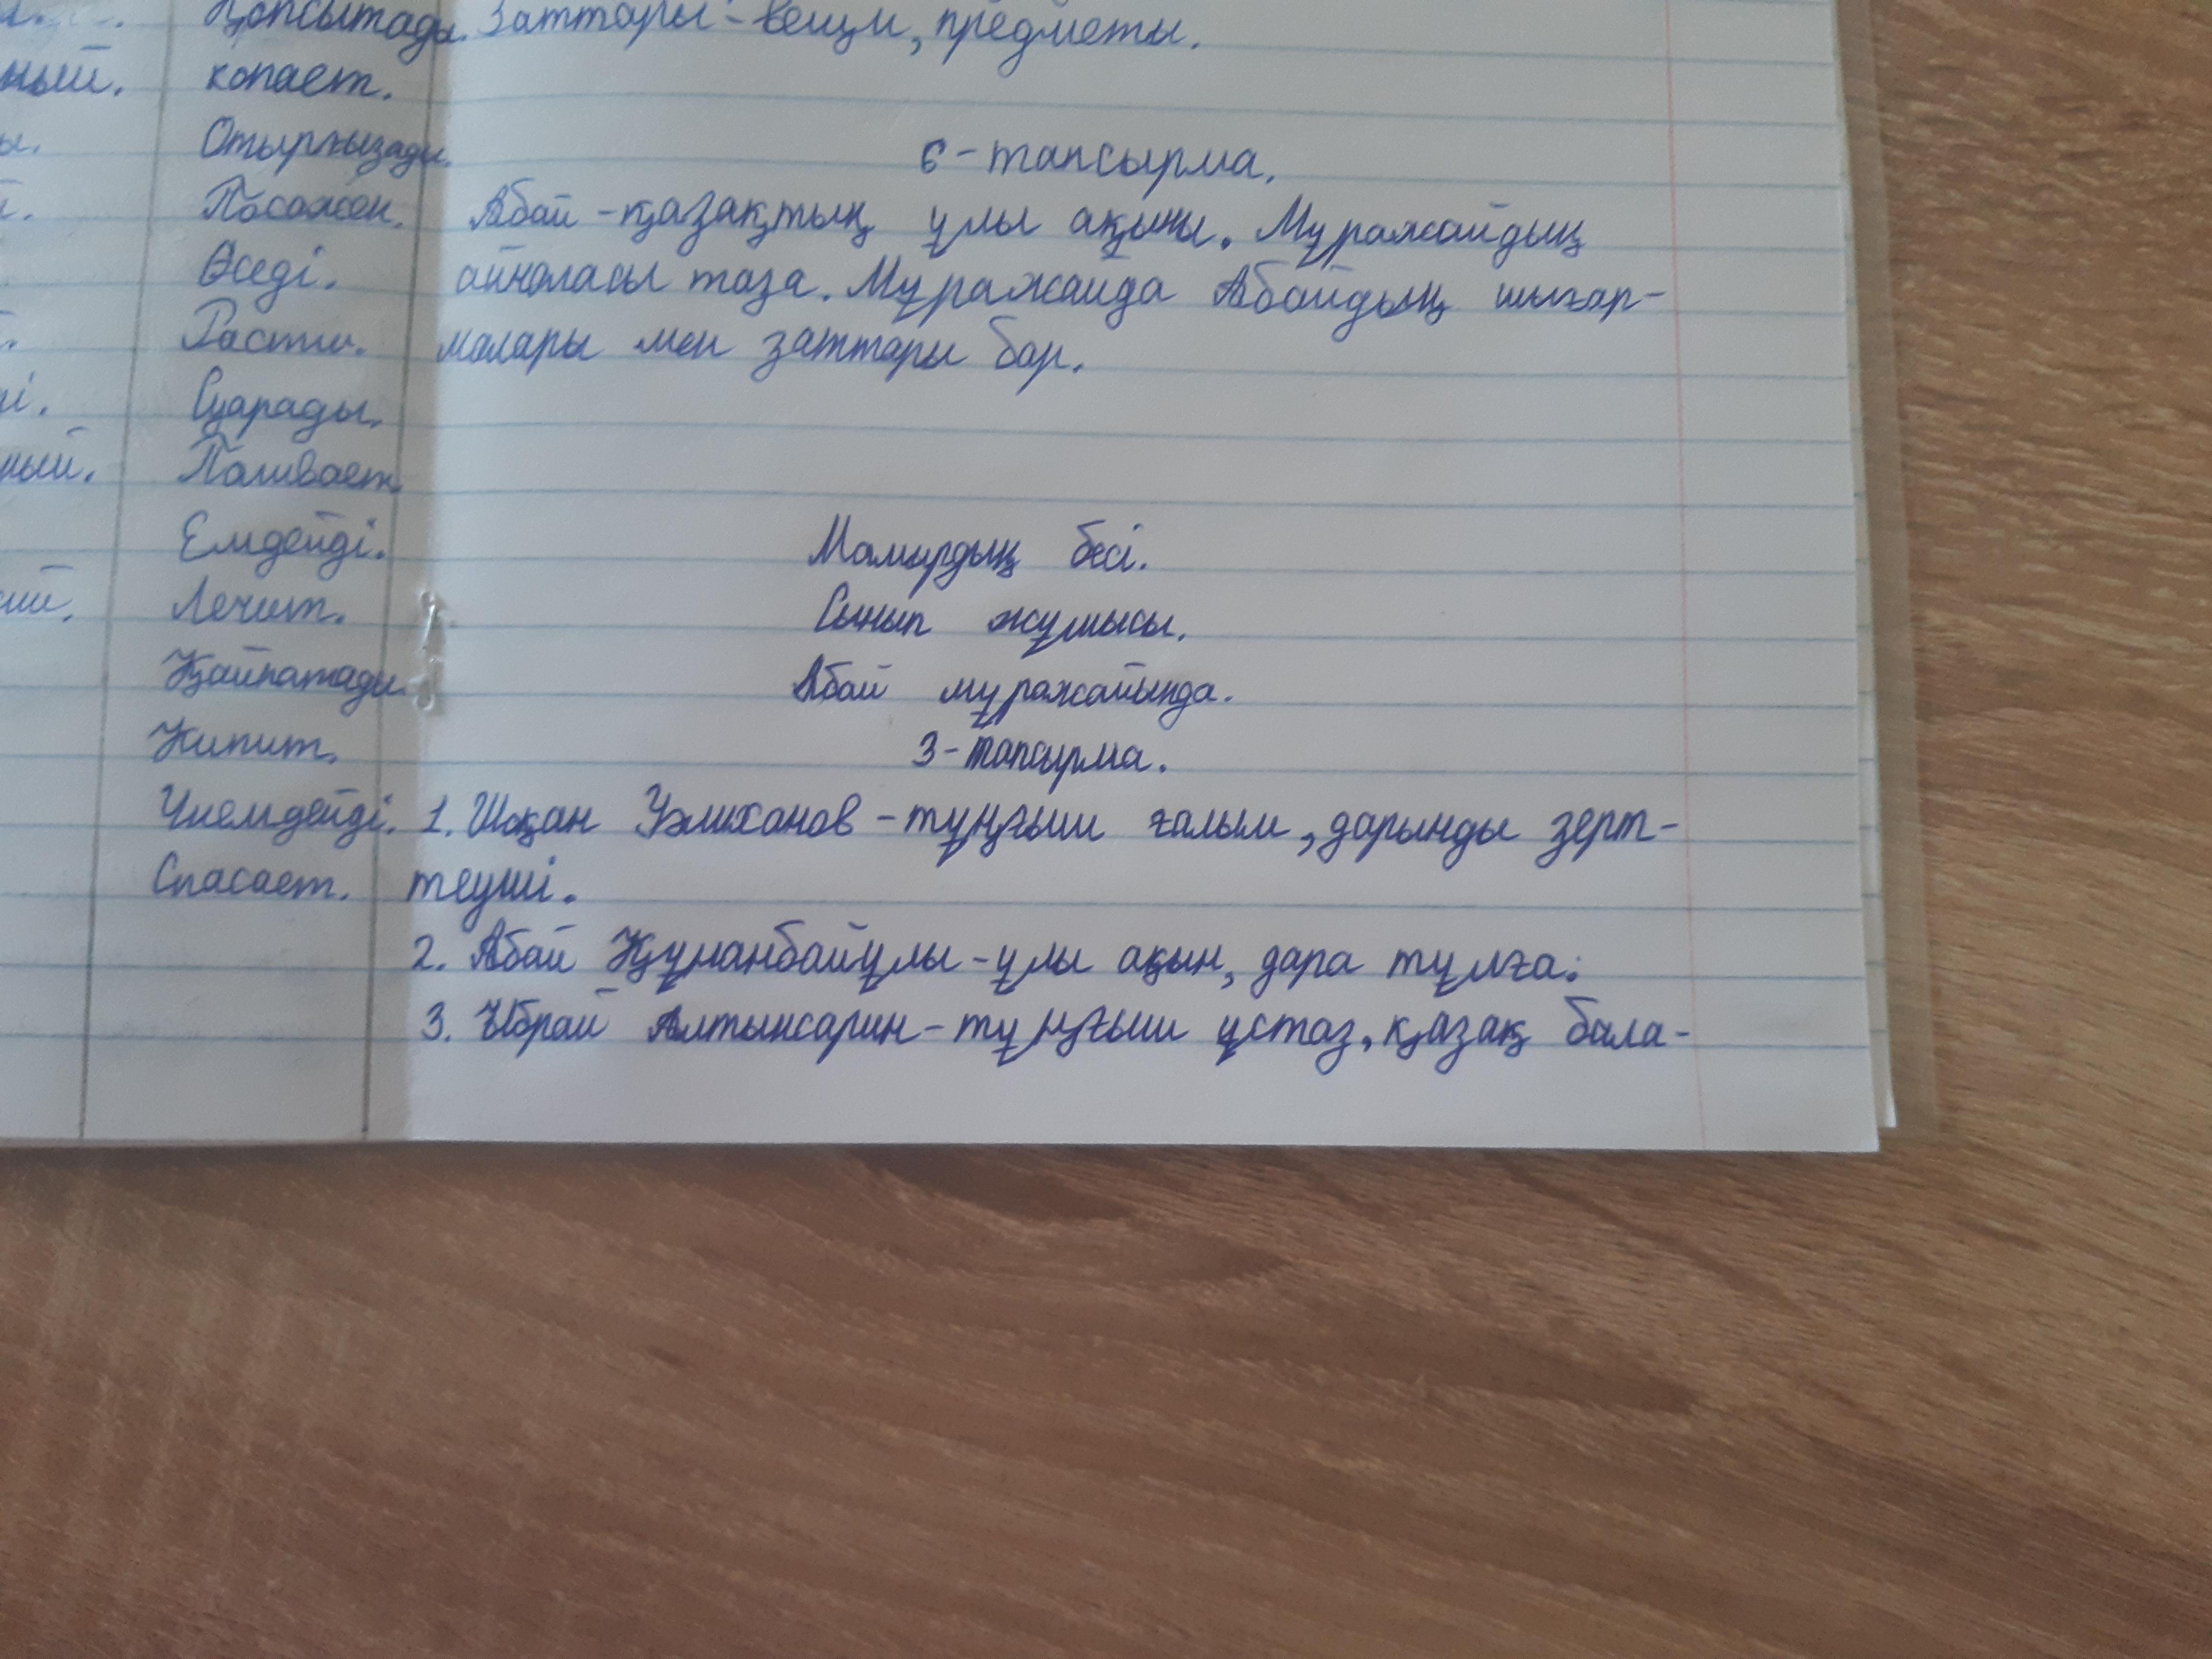 Қопсытады.
ный. копает.
Отырғызады.
Посажен.
Өседі.
Расти.
Суарады.
Поливает.
Емдейді.
Лечит.
Қайнатады.
Кипит.
Үнемдейді.
Спасает.
Заттары - вещи, предметы.
6-тапсырма.
Абай - қазақтың ұлы ақыны. Мұражайдың
айналасы таза. Мұражайда Абайдың шығар-
малары мен заттары бар.
Мамырдың бесі.
Сынып жұмысы.
Абай мұражайында.
3-тапсырма.
1. Шоқан Уәлиханов - тұңғыш ғалым, дарынды зерт-
теуші.
2. Абай Құнанбайұлы - ұлы ақын, дара тұлға.
3. Ыбрай Алтынсарин - тұңғыш ұстаз, қазақ бала-